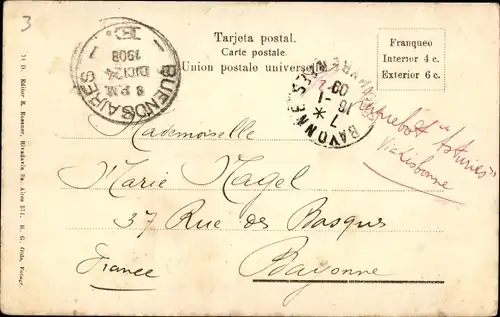 3
Tarjeta postal.
Carte postale.
Union postale universelle
Franqueo
Interior 4 c.
Exterior 6 c.
BUENOS AIRES
6 P.M.
DIC 24
1908
BAYONNE
7
16-1
09
Paquebot "Asturies"
Via Lisbonne
Mademoiselle
Marie Nagel
37 Rue des Basques
Bayonne
France
Editor R. Rosauer, Rivadavia Bs. Aires 571.